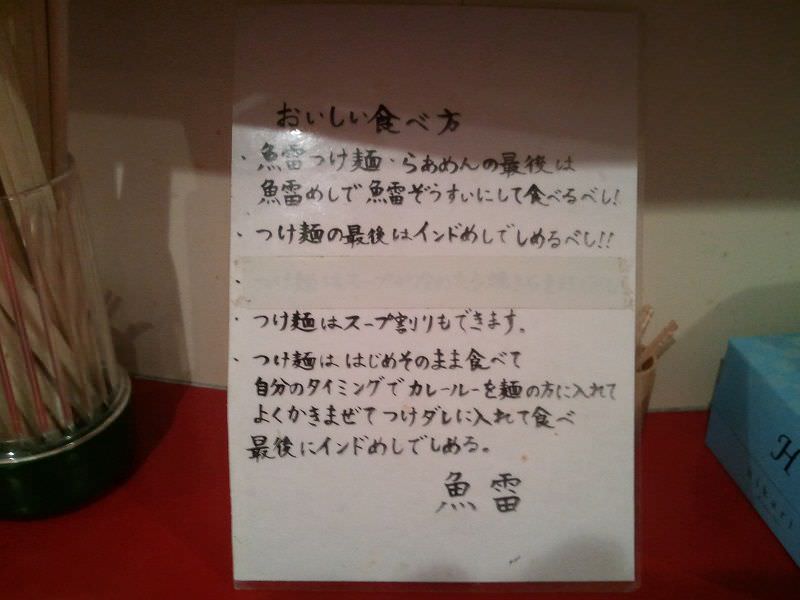 おいしい食べ方
・魚雷つけ麺・らあめんの最後は
魚雷めしで魚雷ぞうすいにして食べるべし!
・つけ麺の最後はインドめしでしめるべし!!
・つけ麺はスープ割りもできます。
・つけ麺は はじめそのまま食べて
自分のタイミングでカレールーを麺の方に入れて
よくかきまぜてつけダレに入れて食べ
最後にインドめしでしめる。
魚雷
H